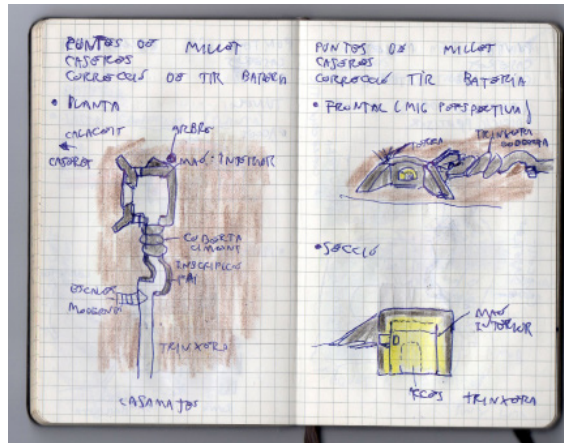 PUNTES DE MILLET
CASERES
CORRECCIÓ DE TIR BATERIA
• PLANTA
CALACEIT
CASERES
ARBRE
MAÓ-INTERIOR
COBERTA
CIMENT
INSCRIPCIÓ
ESCALES
MODERNES
TRINXERA
CASAMATES
PUNTES DE MILLET
CASERES
CORRECCIÓ TIR BATERIA
• FRONTAL (MIG PERSPECTIVA)
TERRA
TRINXERA
COBERTA
• SECCIÓ
MAÓ
INTERIOR
ACCÉS TRINXERA